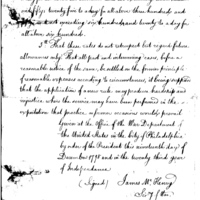 only fifty twenty five to a day for all above three hundred and
and not exceeding six hundred, and twenty to a day for
all above six hundred.
3d That these rates do not retrospect but regard future
allowances only. That all past and intervening cases, before a
reasonable notice of the same, be settled on the former principle
of reasonable expences according to circumstances, it being supposed
that the application of a new rule may produce hardship and
injustice where the service may have been performed in the
expectation that practice in former occasions would prevail
Given at the Office of the War Department of
the United States in the City of Philadelphia
by order of the President this nineteenth day of
December 1798 and in the twenty third year
of Independence
(Signed) James McHenry
Secy of War